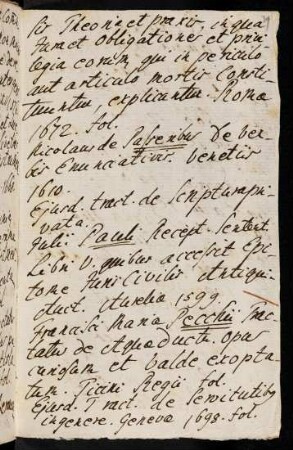 sis Theoria et praxis, in qua
Jura et obligationes et privi
legia eorum, qui in periculo
aut articulo mortis consti
tuuntur, explicantur. Romæ
1672. fol.
Nicolaus de Passeribus De ver
bis Enunciativis. Venetiis
1610.
Ejusd. tract. de Scriptura pri
vata.
Julii Pauli Recept. Sentent.
Libri V. quibus accessit Epi
tome Juris Civilis Antiqui
Auct. Aurelia 1599.
Francisci Maria Pecchii Trac
tatus de Aquæductu opus
curiosum et valde exopta
tum. Ticini Regii fol.
Ejusd. Tract. de Servitutibq
in genere. Genevæ 1698. fol.